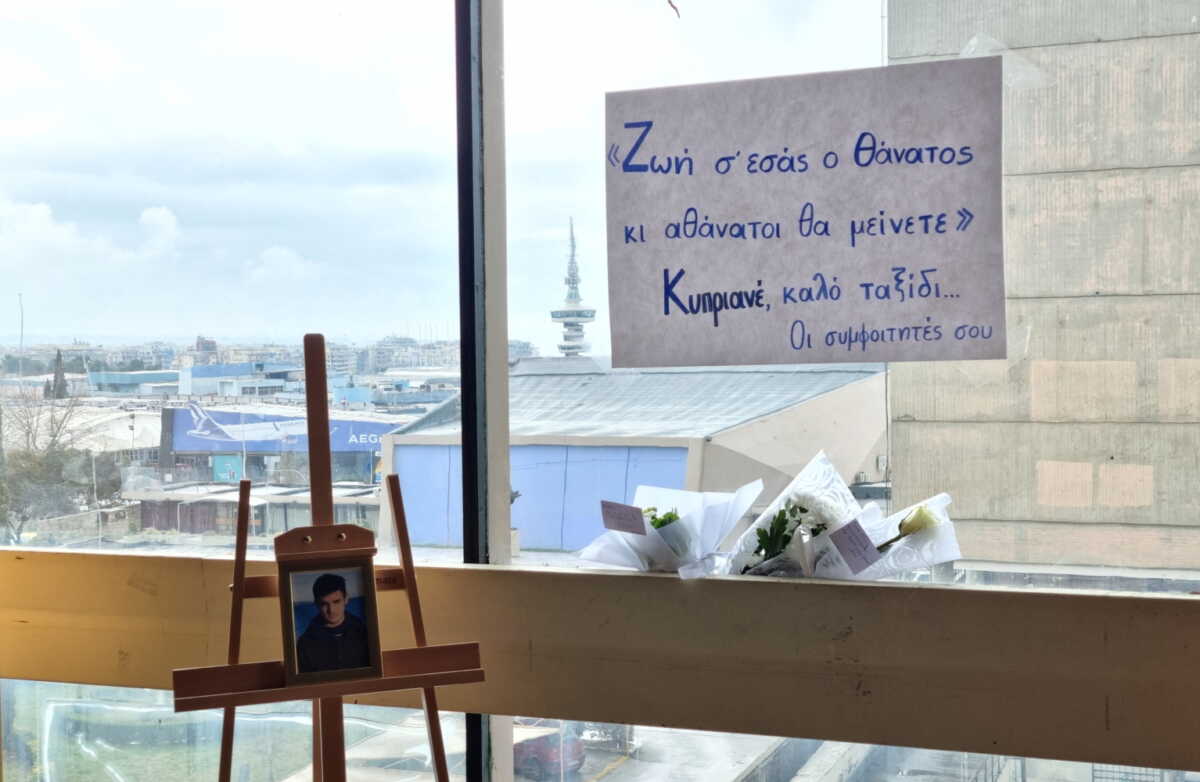 «Ζωή σ' εσάς ο Θάνατος
κι αθάνατοι θα μείνετε»
Κυπριανέ, καλό ταξίδι...
Οι συμφοιτητές σου
AEG